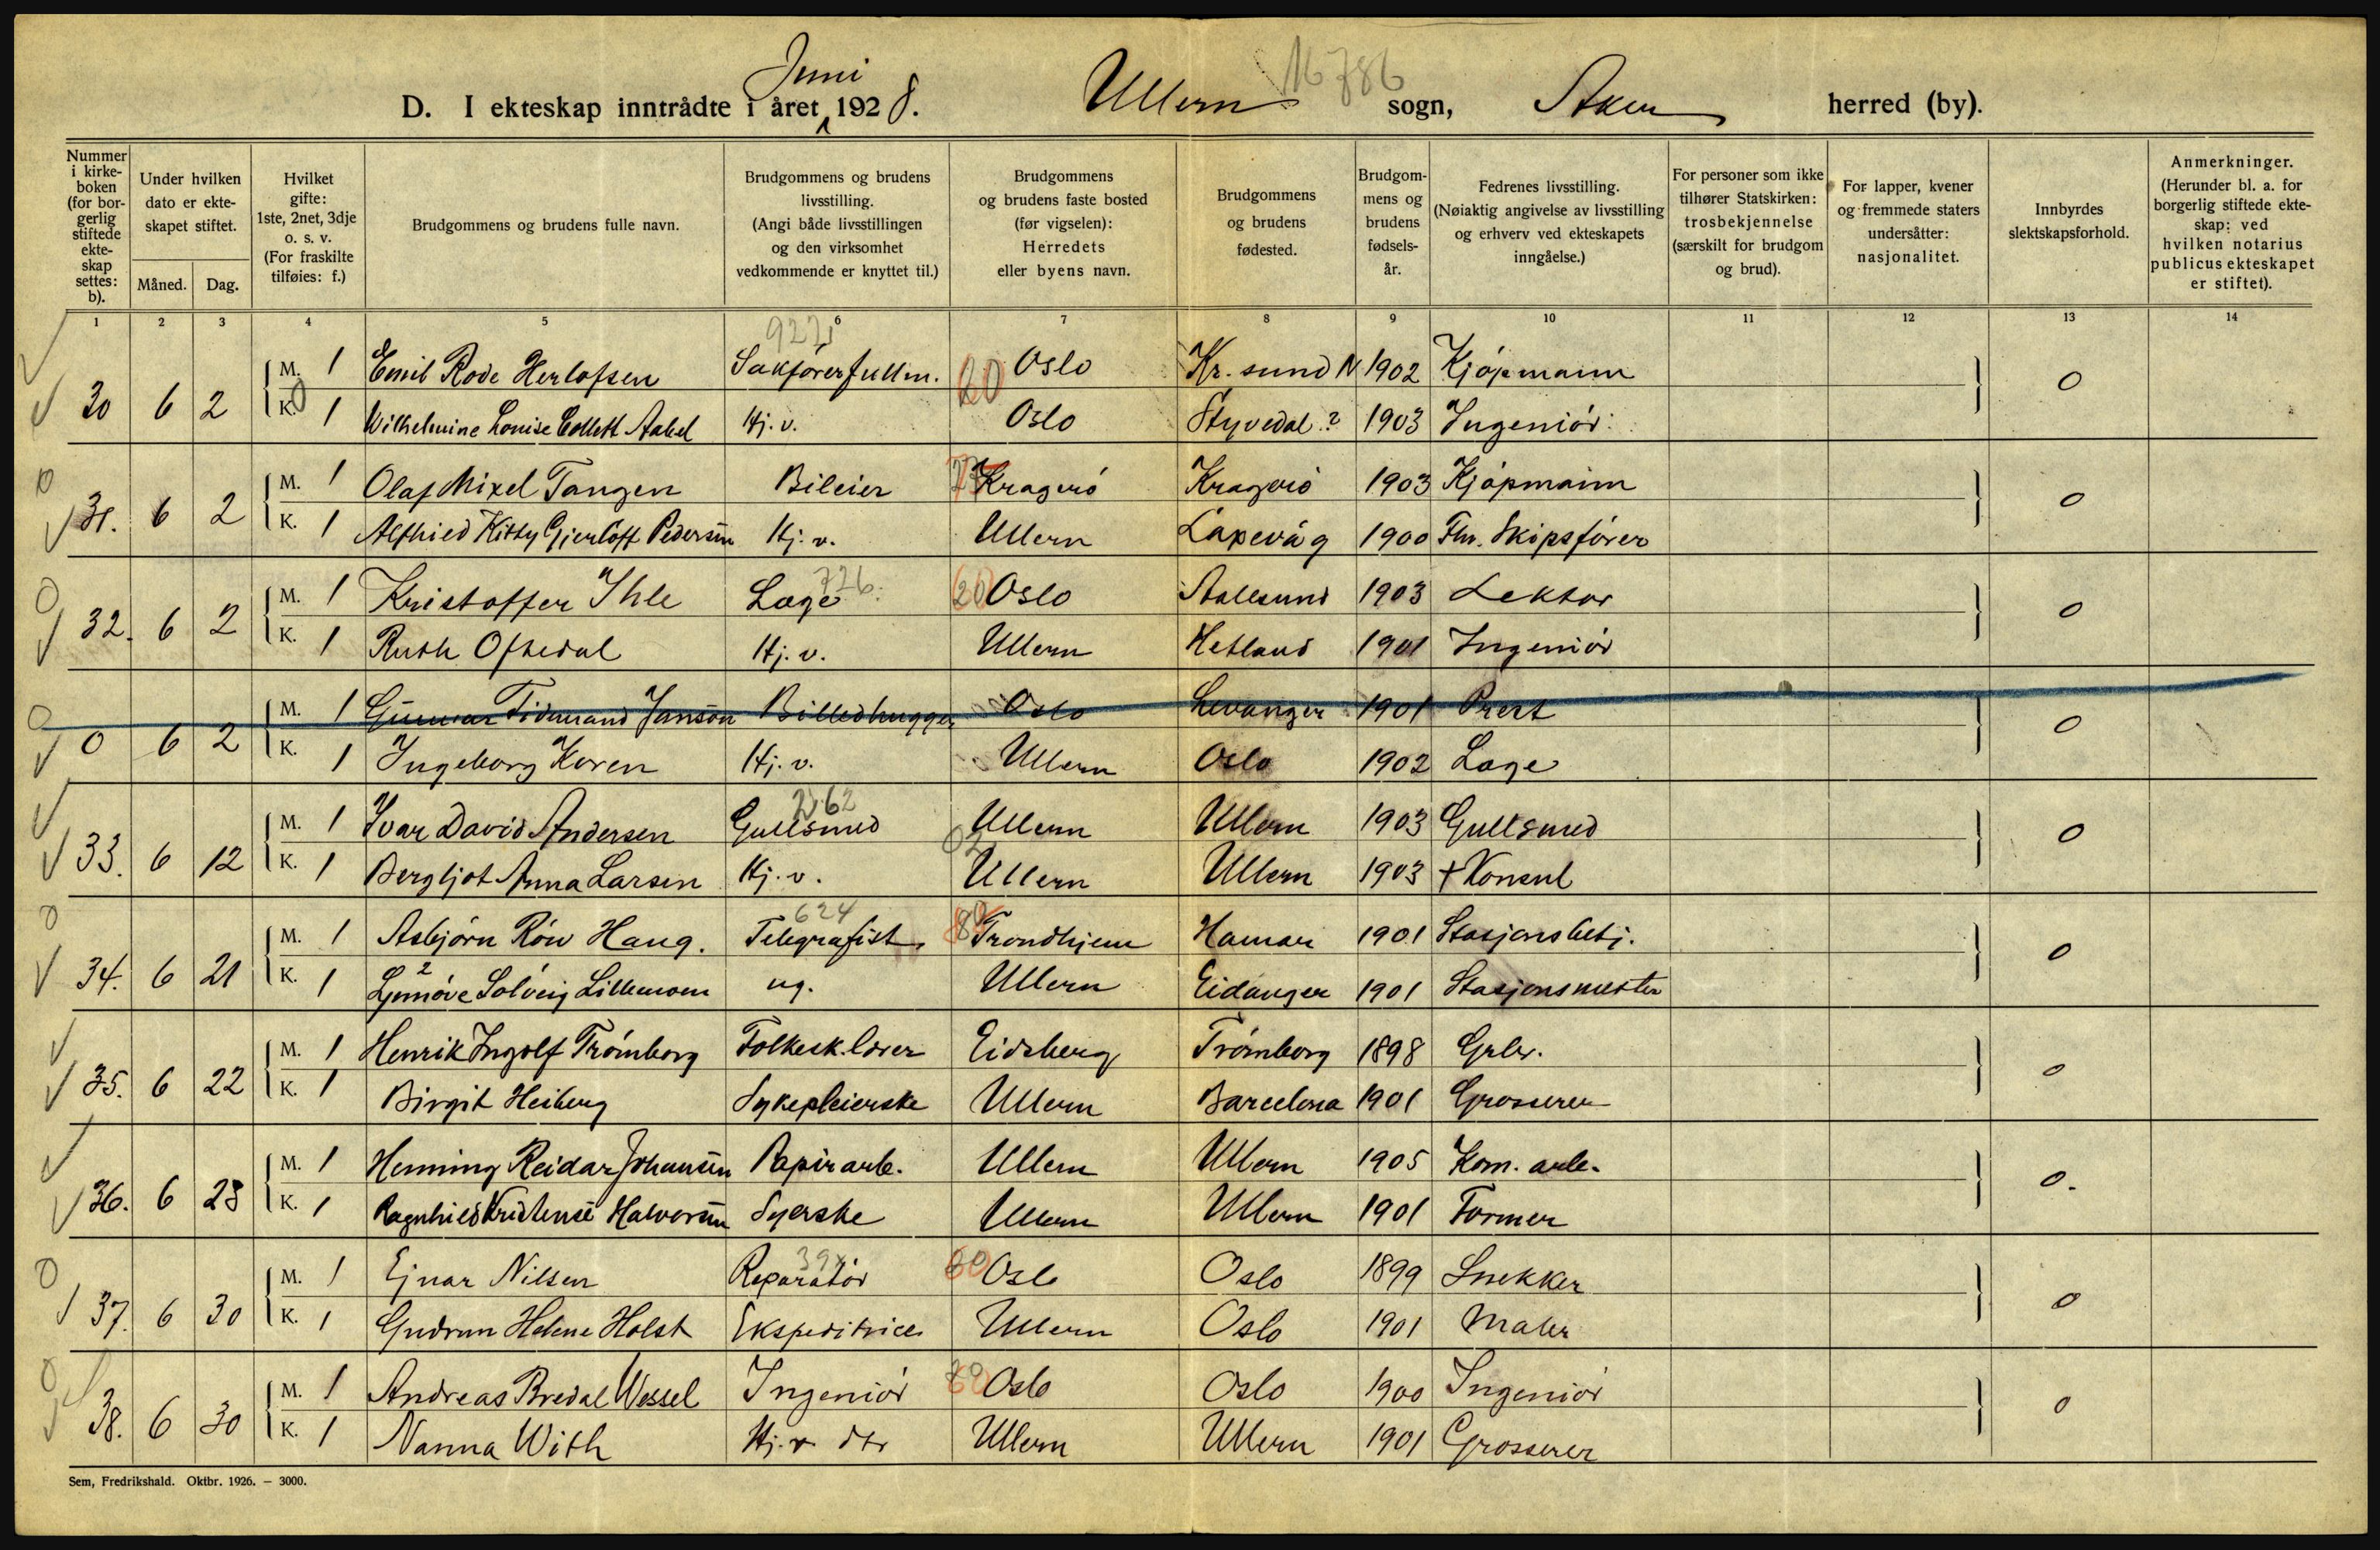 16786
Juni
D. I ekteskap inntrådte i året 1928. Ullern sogn, Aker herred (by).
Nummer i kirke-boken (for bor-gerlig stiftede ekte-skap settes: b).
Under hvilken dato er ekte-skapet stiftet.
Måned. Dag.
Hvilket gifte: 1ste, 2net, 3dje o. s. v. (For fraskilte tilføies: f.)
Brudgommens og brudens fulle navn.
Brudgommens og brudens livsstilling. (Angi både livsstillingen og den virksomhet vedkommende er knyttet til.)
Brudgommens og brudens faste bosted (før vigselen): Herredets eller byens navn.
Brudgommens og brudens fødested.
Brudgom-mens og brudens fødsels-år.
Fedrenes livsstilling. (Nøiaktig angivelse av livsstilling og erhverv ved ekteskapets inngåelse.)
For personer som ikke tilhører Statskirken: trosbekjennelse (særskilt for brudgom og brud).
For lapper, kvener og fremmede staters undersåtter: nasjonalitet.
Innbyrdes slektskapsforhold.
Anmerkninger. (Herunder bl. a. for borgerlig stiftede ekte-skap: ved hvilken notarius publicus ekteskapet er stiftet).
1 2 3 4 5 6 7 8 9 10 11 12 13 14
M. 1 Emil Rode Herlofsen Sakførerfullm. Oslo Kr. sund N 1902 Kjøpmann
30 6 2 0
K. 1 Wilhelmine Louise Collett Aabel Hj. v. Oslo Styvedal ? 1903 Ingeniør
M. 1 Olaf Mixel Tangen Bileier Kragerø Kragerø 1903 Kjøpmann
31. 6 2 0
K. 1 Alfhied Kitty Gjerløff Pedersen Hj. v. Ullern Laxevåg 1900 Fhv. Skipsfører
M. 1 Kristoffer Ihle Læge 726 20 Oslo Aalesund 1903 Lektor
32. 6 2 0
K. 1 Ruth Oftedal Hj. v. Ullern Hetland 1901 Ingeniør
M. 1 Gunnar Tidmand Janson Billedhugger Oslo Levanger 1901 Prest
0 6 2 0
K. 1 Ingeborg Koren Hj. v. Ullern Oslo 1902 Læge
M. 1 Ivar David Andersen Gullsmed Ullern Ullern 1903 Gullsmed
33. 6 12 0
K. 1 Bergljot Anna Larsen Hj. v. Ullern Ullern 1903 + Konsul
M. 1 Asbjørn Røw Haug. Telegrafist 624 Trondhjem Hamar 1901 Stasjonsbetj.
34. 6 21 0
K. 1 Synnøve Solveig Lillemoen ug. Ullern Eidanger 1901 Stasjonsmester
M. 1 Henrik Ingolf Trømborg Folkesk.lærer Eidsberg Trømborg 1898 Grbr.
35. 6 22 0
K. 1 Birgit Heiberg Sykepleierske Ullern Barcelona 1901 Grosserer
M. 1 Henning Reidar Johansen Papirarb. Ullern Ullern 1905 Kom. arb.
36. 6 23 0.
K. 1 Ragnhild Kristense Halvorsen Syerske Ullern Ullern 1901 Former
M. 1 Ejnar Nilsen Reparatør Oslo Oslo 1899 Snekker
37. 6 30 0
K. 1 Gudrun Helene Holst Ekspeditrice Ullern Oslo 1901 Maler
M. 1 Andreas Bredal Wessel Ingeniør Oslo Oslo 1900 Ingeniør
38. 6 30 0
K. 1 Nanna With Hj. v. dtr Ullern Ullern 1901 Grosserer
Sem, Fredrikshald. Oktbr. 1926. — 3000.